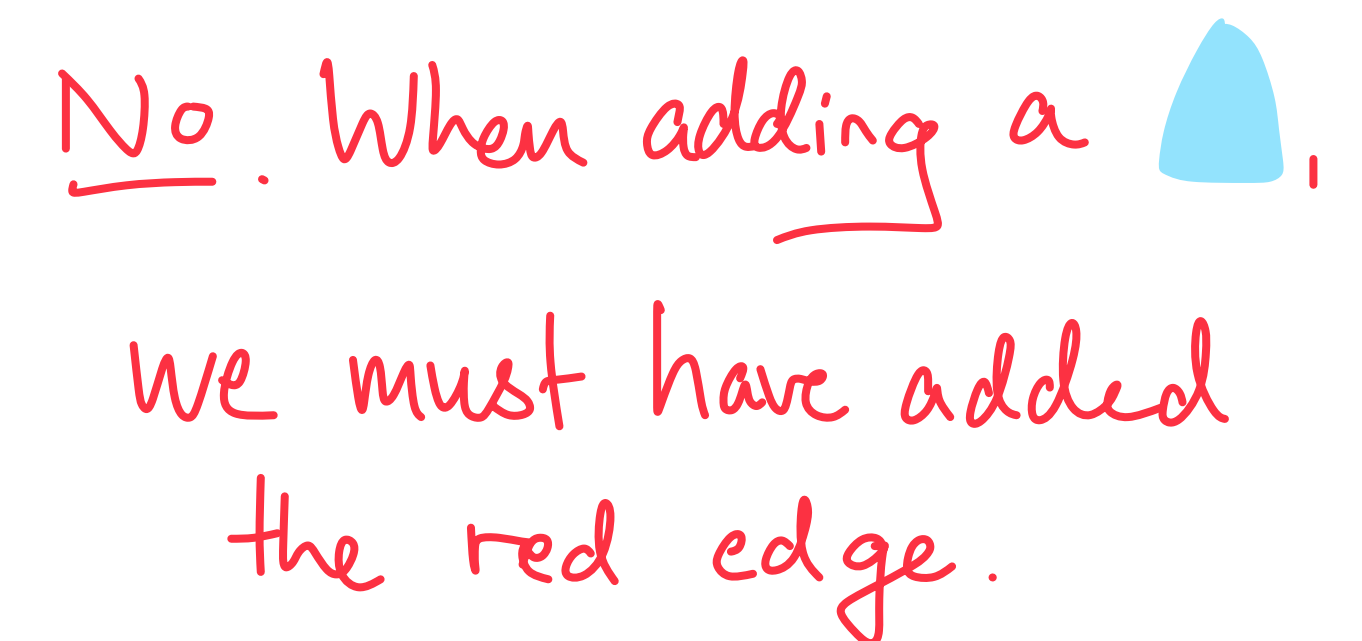 No. When adding a ,
we must have added
the red edge.